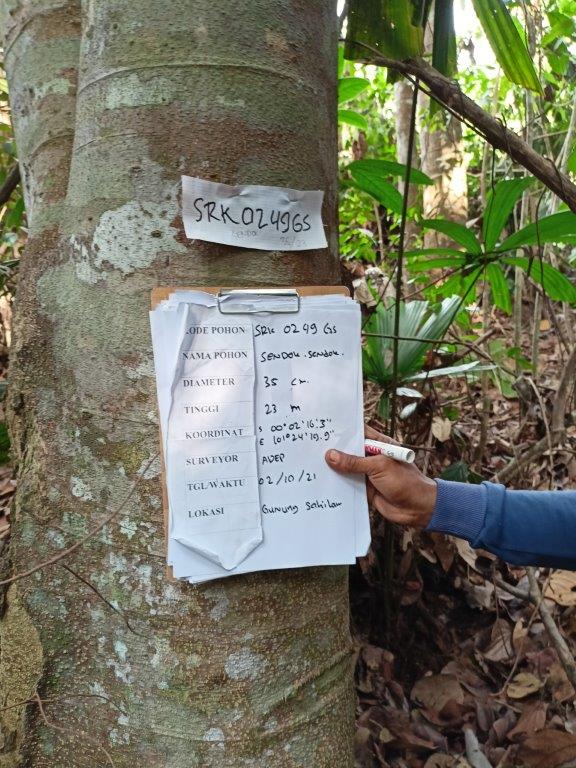 SRK0249GS
KODE POHON SRK 0249 GS
NAMA POHON SENDOK. SENDOK.
DIAMETER 35 cm.
TINGGI 23 m
KOORDINAT S 00°02'16.3"
E 101°24'19.9"
SURVEYOR
TGL/WAKTU 02/10/21
LOKASI Gunung Sahilan